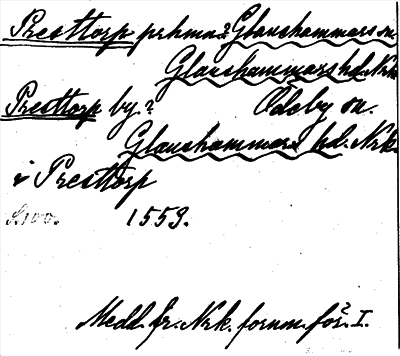 Presttorp prhmn? Glanshammars sn.
Glanshammars hd. Nrk.
Presttorp by? Ödeby sn.
Glanshammars hd. Nrk.
i Presttorp
1559.
Medd. fr. Nrk. fornm. för. I.